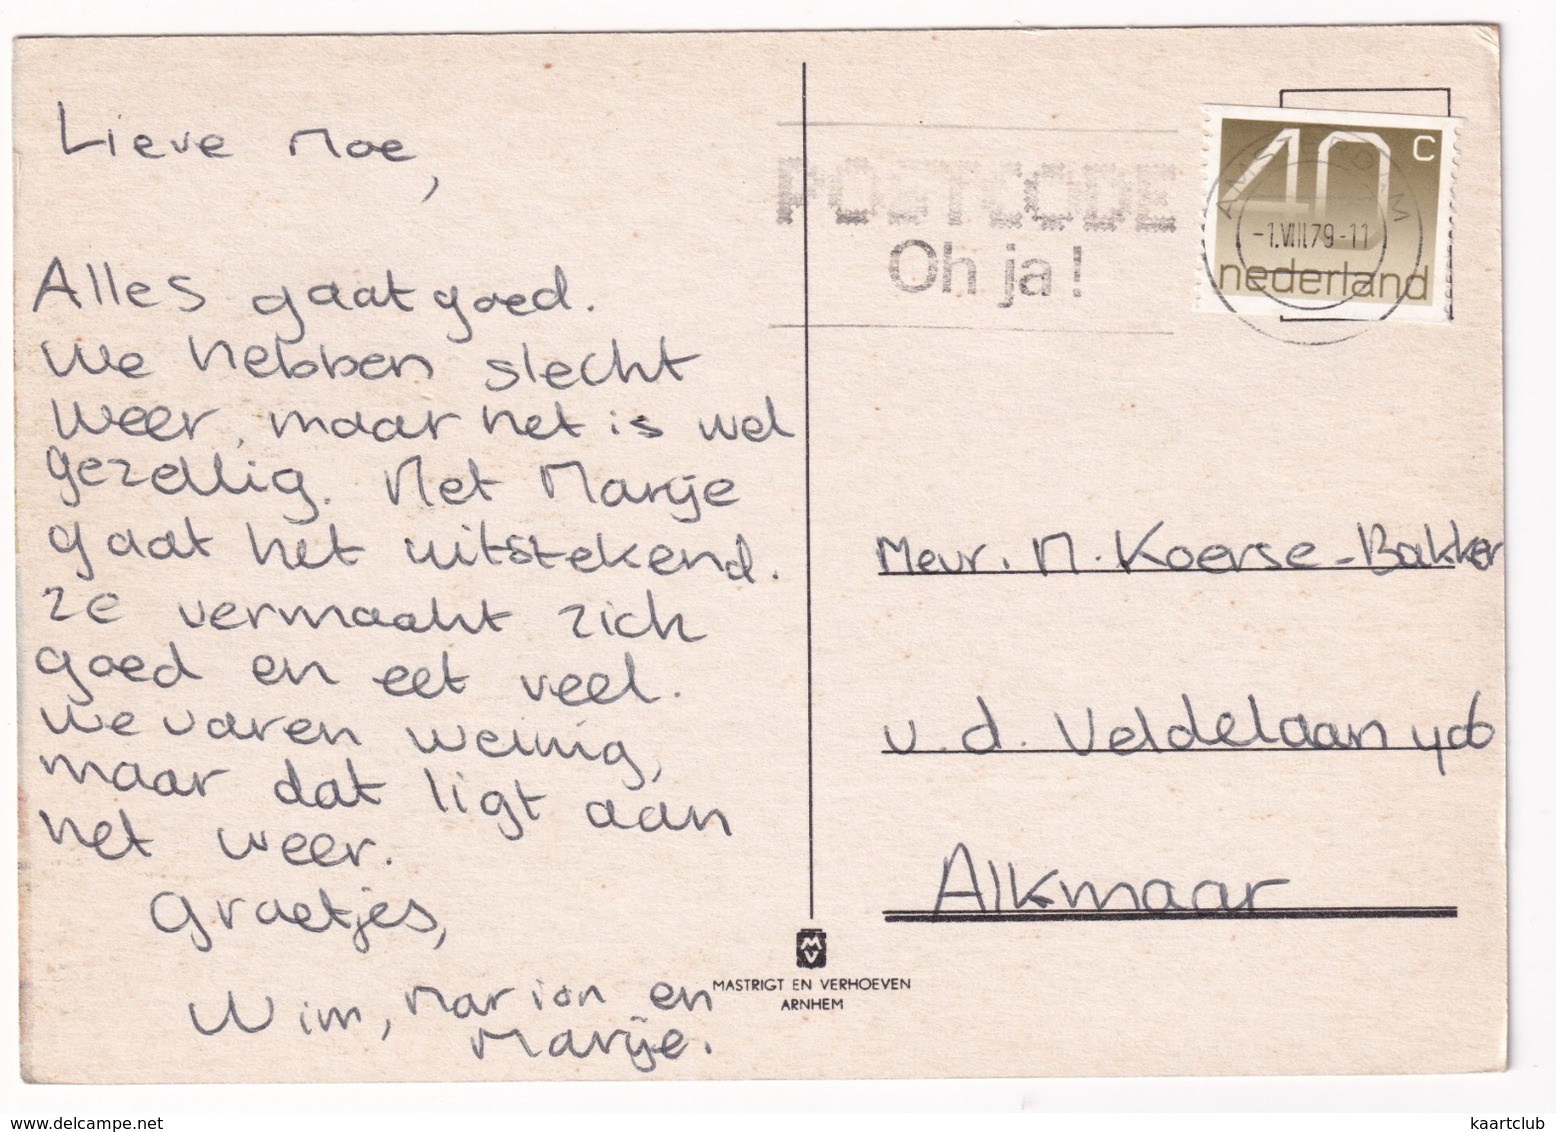 Lieve Moe,
Alles gaat goed.
We hebben slecht
weer, maar het is wel
gezellig. Met Marije
gaat het uitstekend.
Ze vermaakt zich
goed en eet veel.
We varen weinig,
maar dat ligt aan
het weer.
Groetjes,
Wim, Marion en
Marije.
POSTCODE
Oh ja!
40 c
-1.VIII.79-11
nederland
Mevr. M. Koerse-Bakker
v.d. Veldelaan 406
Alkmaar
MV
MASTRIGT EN VERHOEVEN
ARNHEM
www.delcampe.net
kaartclub